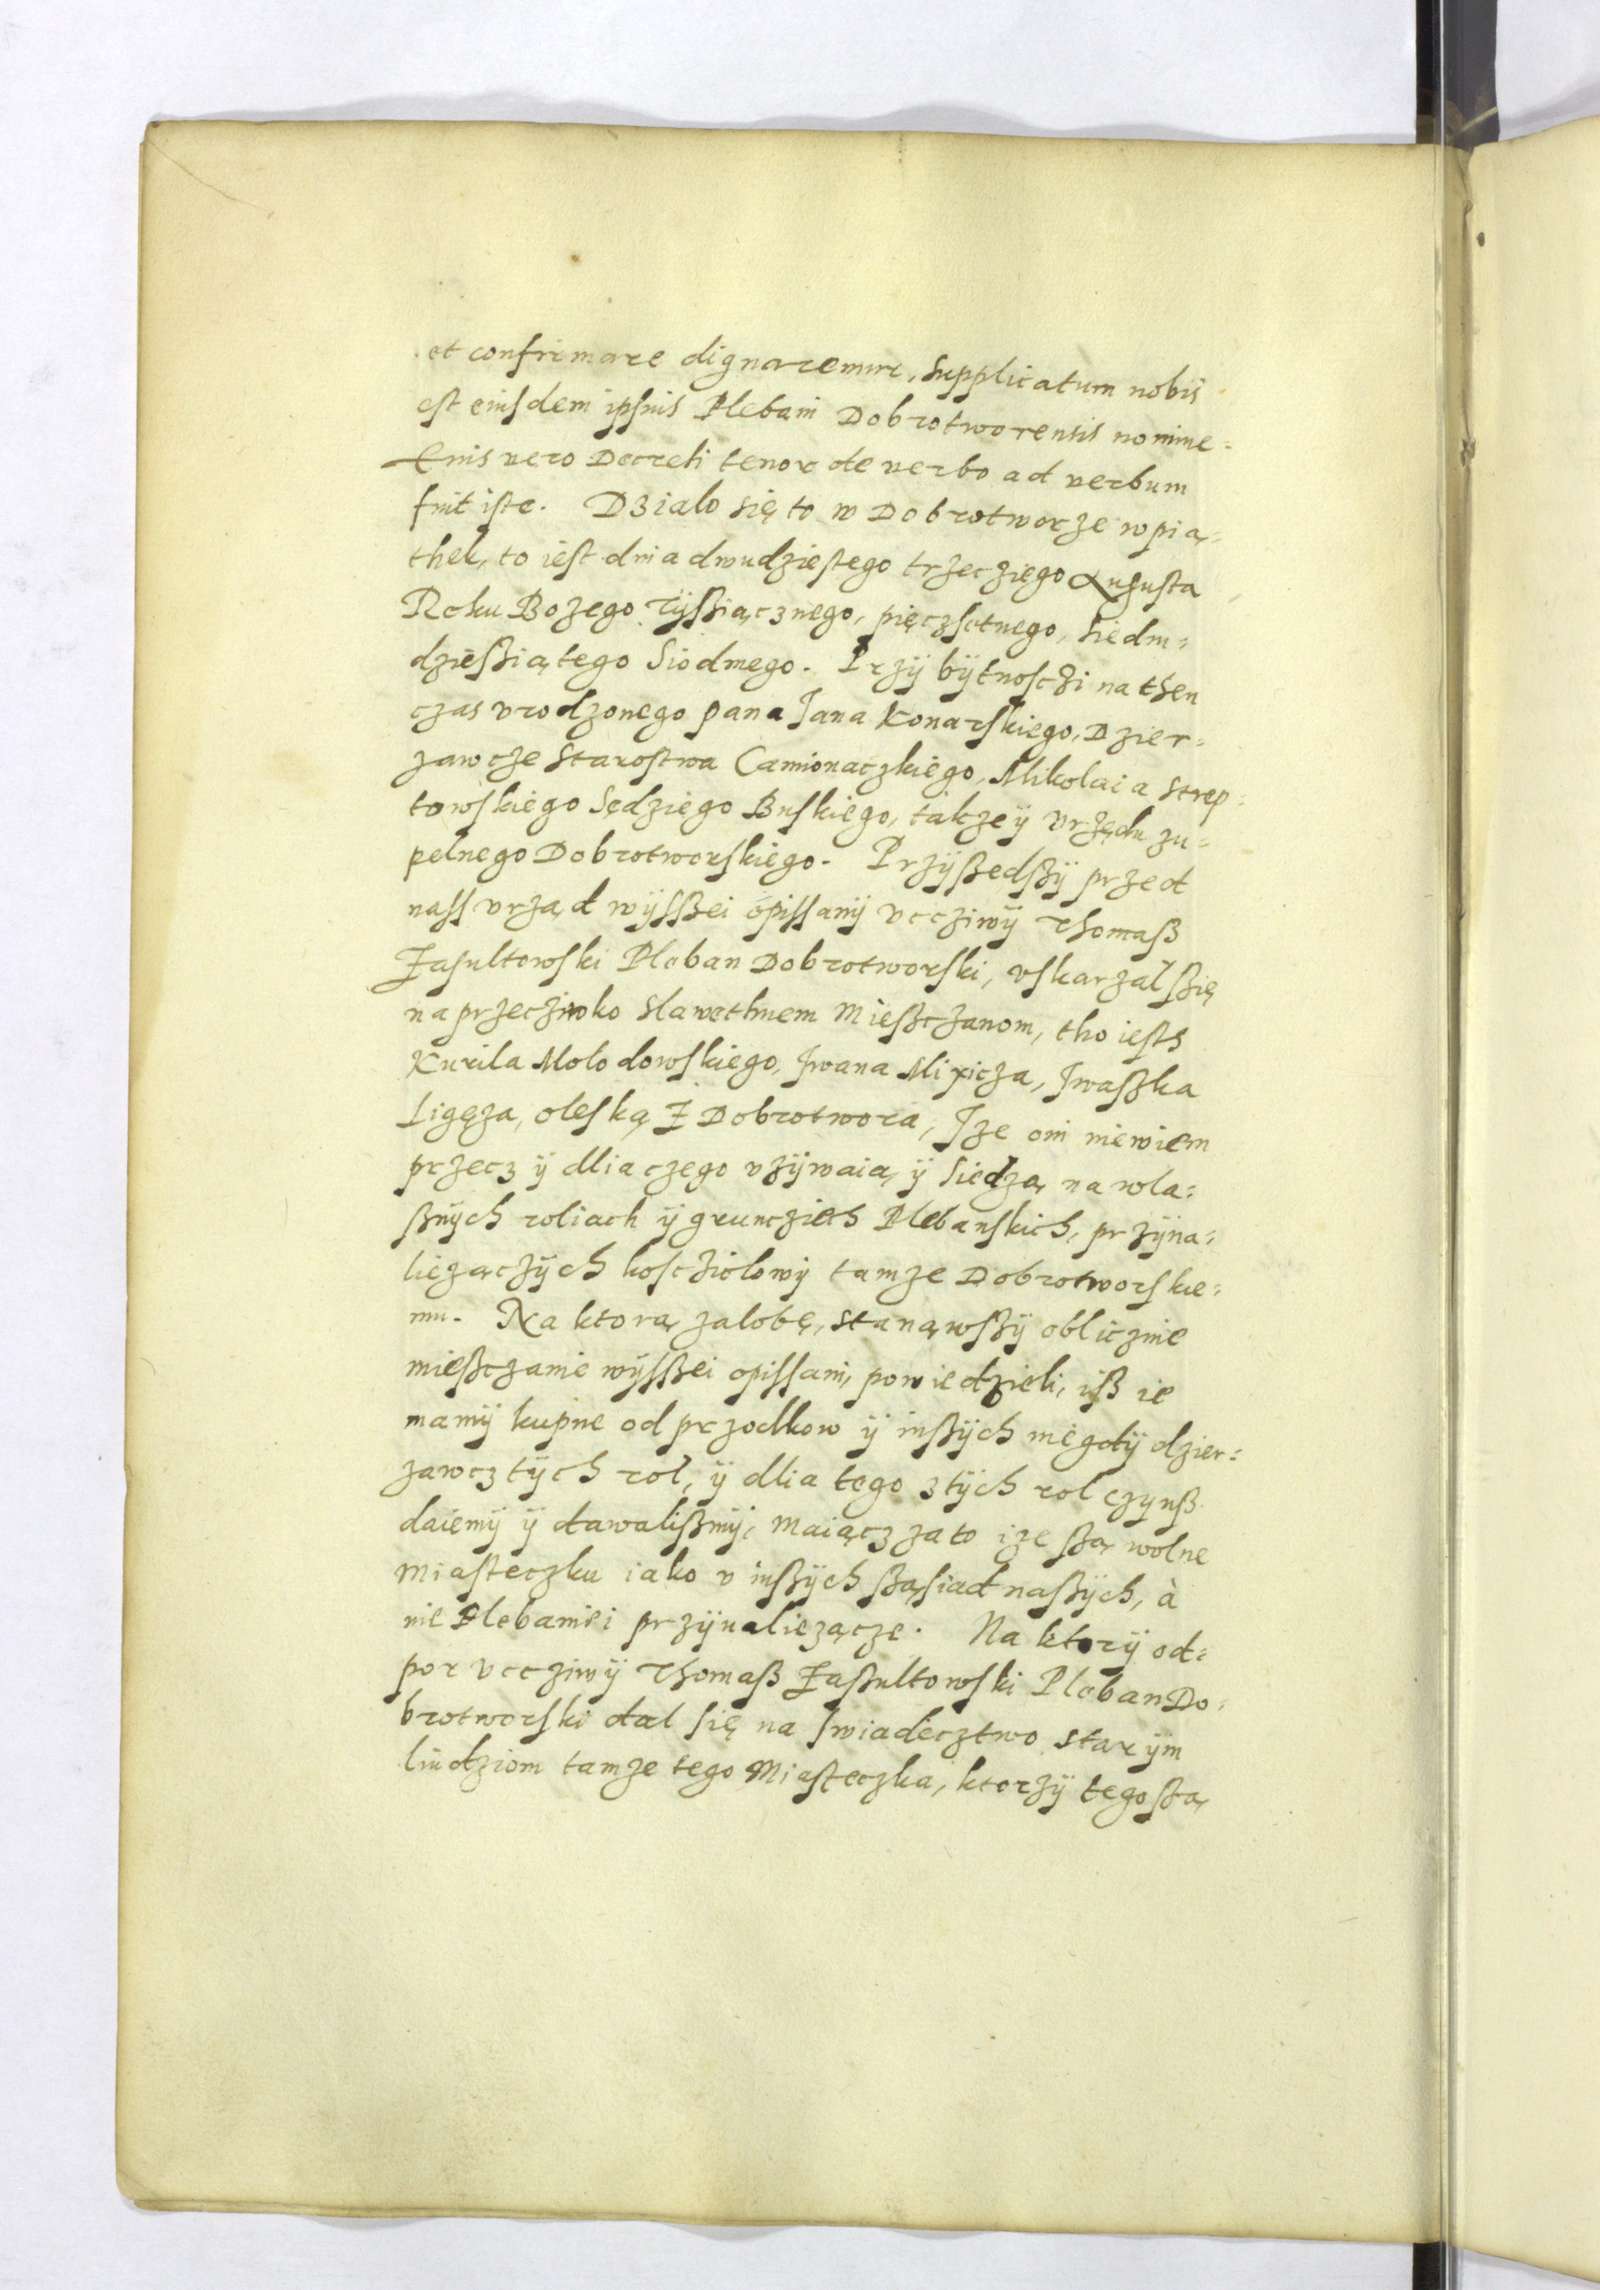 et confirmare dignaremur, supplicatum nobis
est eiusdem ipsius Plebani Dobrotworensis nomine.
Cuius vero Decreti tenor de verbo ad verbum
fuit iste. Dzialo się to w Dobrotworze w pią-
thek, to iest dnia dwudziestego trzecziego Augusta
Roku Bozego Tÿssiącznego, pięczsetnego, siedm-
dziessiątego siodmego. Przÿ bÿtnosczi na then
czas vrodzonego pana Jana Konarskiego, Dzier-
zawcze Starostwa Camionaczkiego, Mikolaia Strep-
towskiego Sędziego Buskiego, takze ÿ vrzędu zu-
pelnego Dobrotworskiego. Przÿßedßÿ przed
nass vrząd wÿssßei opissanÿ vccziwÿ Thomaß
Zasultowski Pleban Dobrotworski, vskarzał ßię
naprzecziwko slawethnem Mießczanom, tho iesth
Kurila Molodowskiego, Jwana Mixicza, Jwaszka
Ligęza, oleską Z Dobrotwora, Jze oni niewiem
przecz ÿ dlia czego vzÿwaią ÿ siedzą na wla-
ßnÿch roliach ÿ grunczieh Plebanskich, przÿna-
liezączÿch koscziolowÿ tamze Dobrotworskie-
mu. Na ktorą zalobę, stanąwszÿ oblicznie
mießczanie wÿssßei opissani, powiedzieli, iß ie
mamÿ kupne od przodkow ÿ inßÿch niegdÿ dzier-
zawcz tÿch rol, ÿ dlia tego z tÿch rol czÿnß
daiemÿ ÿ dawalißmÿ, maiącz zato ize ßą wolne
Miasteczku iako v inßÿch ßąsiad naßÿch, à
nie Plebaniei przÿnaliezącze. Na ktorÿ od-
por vccziwÿ Thomaß Zaßultowski Pleban Do-
brotworski dal się na swiadecztwo starÿm
liudziom tamze tego Miasteczka, ktorzÿ tego ßą